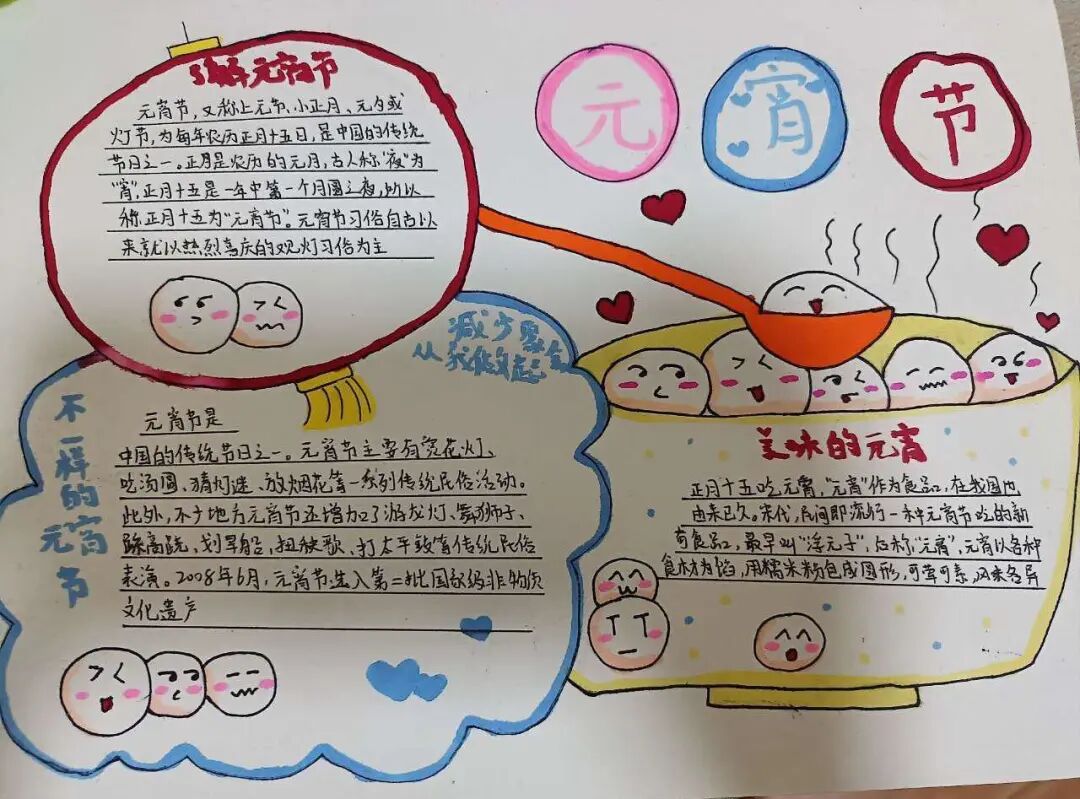 元宵节
了解元宵节
元宵节,又称上元节、小正月、元夕或
灯节,为每年农历正月十五日,是中国的传统
节日之一。正月是农历的元月,古人称“夜”为
“宵”,正月十五是一年中第一个月圆之夜,所以
称正月十五为“元宵节”。元宵节习俗自古以
来就以热烈喜庆的观灯习俗为主
减少聚会
从我做起
不一样的元宵节
元宵节是
中国的传统节日之一。元宵节主要有赏花灯、
吃汤圆、猜灯谜、放烟花等一系列传统民俗活动。
此外,不少地方元宵节还增加了游龙灯、舞狮子、
踩高跷、划旱船、扭秧歌、打太平鼓等传统民俗
表演。2008年6月,元宵节选入第二批国家级非物质
文化遗产
美味的元宵
正月十五吃元宵,“元宵”作为食品,在我国也
由来已久。宋代,民间即流行一种元宵节吃的新
奇食品,最早叫“浮元子”,后称“元宵”,元宵以各种
食材为馅,用糯米粉包成圆形,可荤可素,风味各异